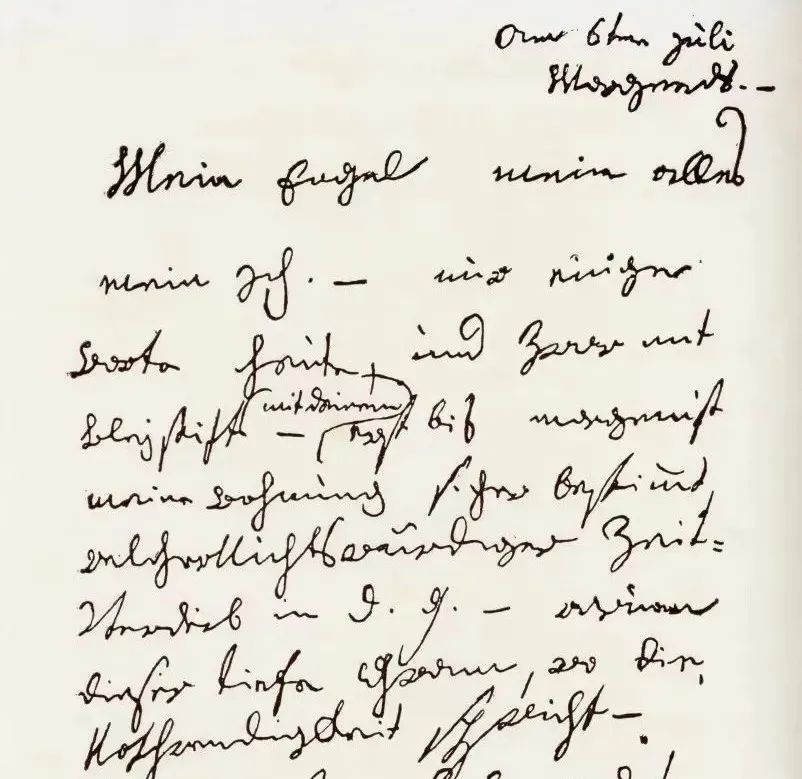 am 6ten juli
Morgends. –
Mein Engel mein alles
mein Ich. – nur einige
worte heute, und zwar mit
Bleystift – (mit deinem) erst bis morgen ist
meine wohnung sicher bestimt,
welcher Nichtswürdiger Zeit-
Verderb in d. g. – warum
dieser tiefe Gram, wo die
Nothwendigkeit spricht –